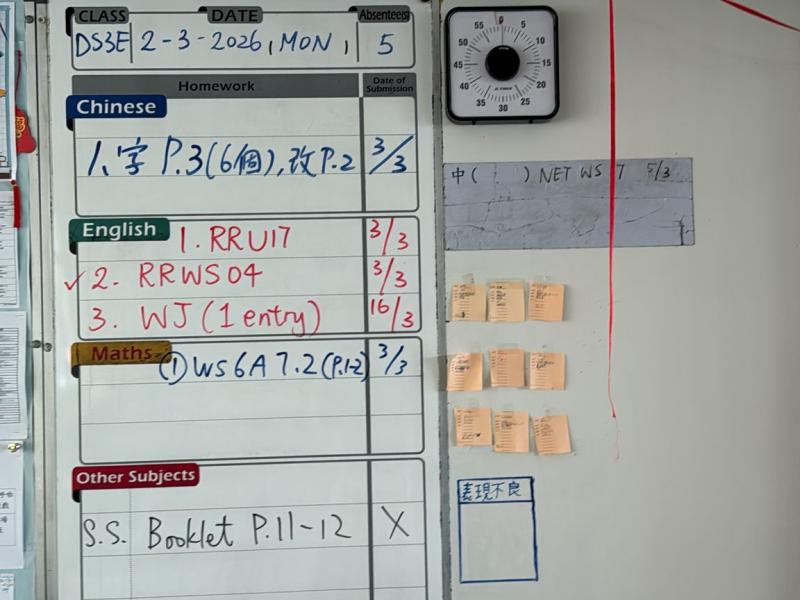 CLASS DATE Absentee(s)
DS3E 2-3-2026, MON, 5
Homework Date of Submission
Chinese
1. 字 P.3(6個), 改P.2 3/3
English
1. RRU17 3/3
✓ 2. RRWS04 3/3
3. WJ (1 entry) 16/3
Maths
① WS6A 7.2 (P.1-2) 3/3
Other Subjects
S.S. Booklet P.11-12 X
0
55 5
50 10
45 15
40 20
35 25
30
中( ) NET WS 7 5/3
表現不良